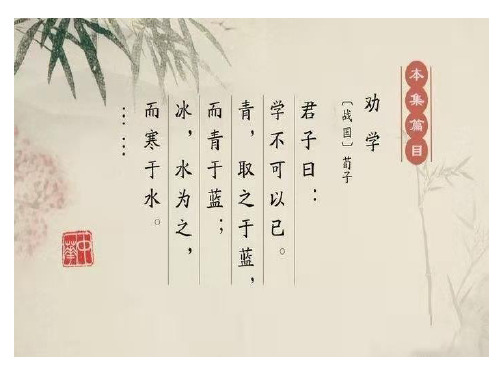 本集篇目
劝学
〔战国〕荀子
君子曰：
学不可以已。
青，取之于蓝，
而青于蓝；
冰，水为之，
而寒于水。
……
中华